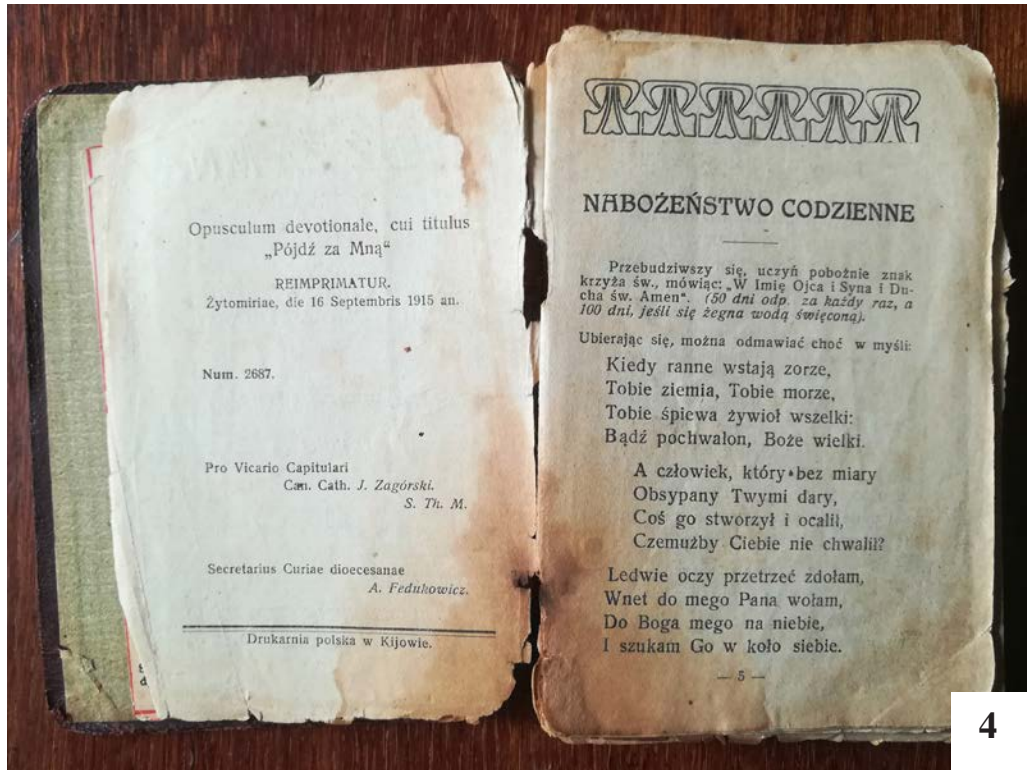 Opusculum devotionale, cui titulus
„Pójdź za Mną“
REIMPRIMATUR.
Żytomiriae, die 16 Septembris 1915 an.
Num. 2687.
Pro Vicario Capitulari
Can. Cath. J. Zagórski.
S. Th. M.
Secretarius Curiae dioecesanae
A. Fedukowicz.
Drukarnia polska w Kijowie.
NABOŻEŃSTWO CODZIENNE
Przebudziwszy się, uczyń pobożnie znak
krzyża św., mówiąc: „W Imię Ojca i Syna i Du-
cha św. Amen“. (50 dni odp. za każdy raz, a
100 dni, jeśli się żegna wodą święconą).
Ubierając się, można odmawiać choć w myśli:
Kiedy ranne wstają zorze,
Tobie ziemia, Tobie morze,
Tobie śpiewa żywioł wszelki:
Bądź pochwalon, Boże wielki.
A człowiek, który bez miary
Obsypany Twymi dary,
Coś go stworzył i ocalił,
Czemużby Ciebie nie chwalił?
Ledwie oczy przetrzeć zdołam,
Wnet do mego Pana wołam,
Do Boga mego na niebie,
I szukam Go w koło siebie.
— 5 —
4